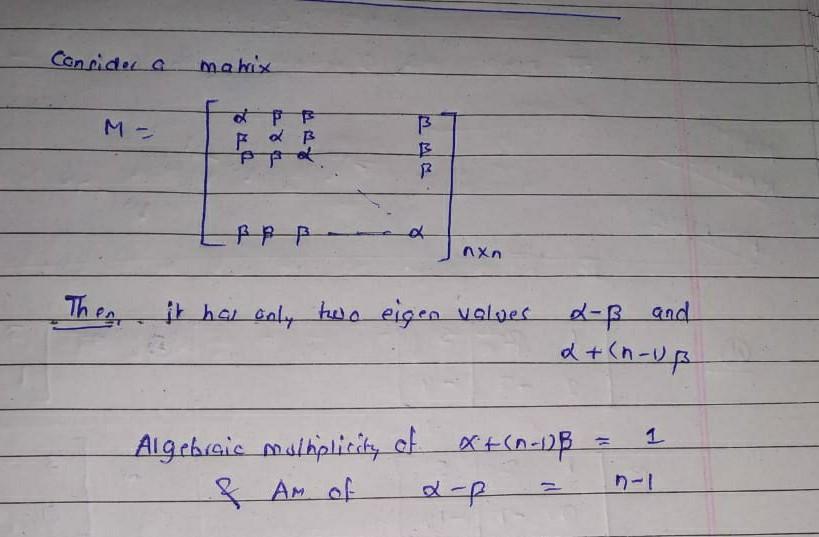 Consider a matrix
M =
α β β β
β α β β
β β α β
β β β — — α
n×n
Then, it has only two eigen values α-β and
α+(n-1)β
Algebraic multiplicity of α+(n-1)β = 1
& AM of α-β = n-1